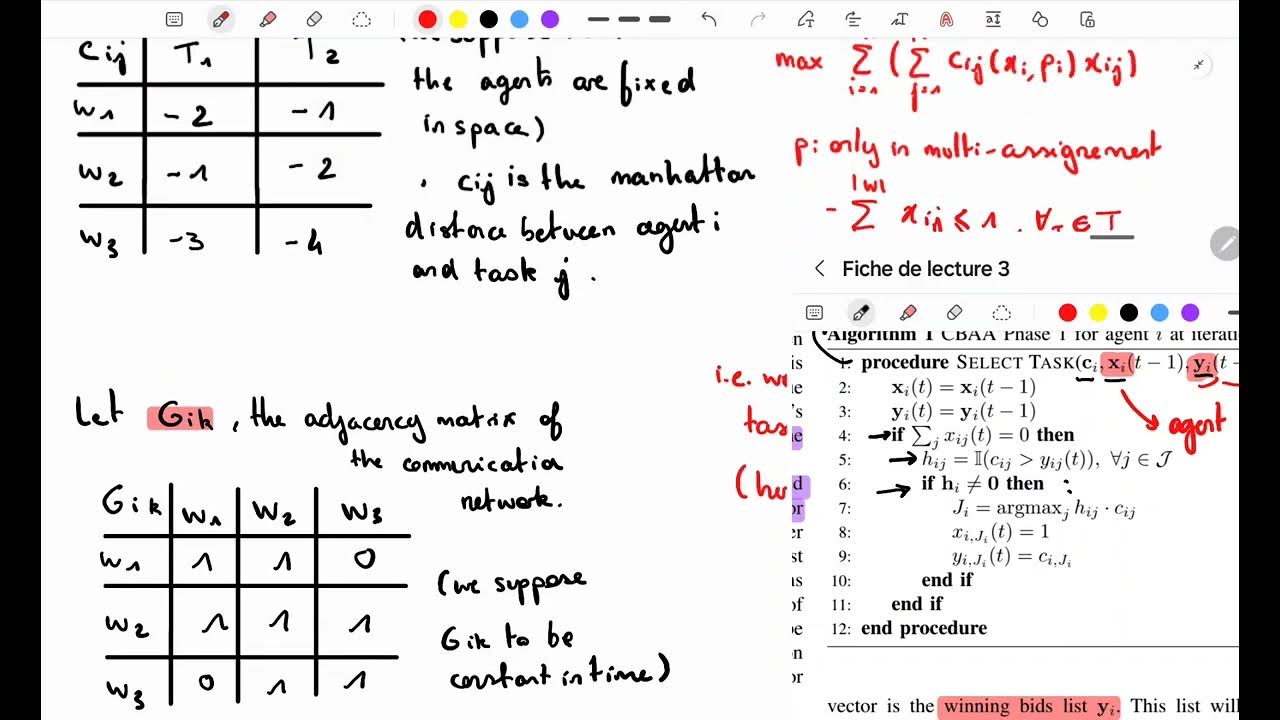 Cij T1 T2
W1 -2 -1
W2 -1 -2
W3 -3 -4
the agents are fixed
in space)
. cij is the manhattan
distance between agent i
and task j .
Let Gik , the adjacency matrix of
the communication
network.
Gik W1 W2 W3
W1 1 1 0
W2 1 1 1
W3 0 1 1
(we suppose
Gik to be
constant in time)
i.e. we
tas
(he
max Σ i=1 ( Σ j=1 Cij(xi, pi) xij)
pi only in multi-assignement
|W|
- Σ xij ≤ 1 . ∀ ∈ T
Fiche de lecture 3
Algorithm 1 CBAA Phase 1 for agent i at iterati
1: procedure SELECT TASK(ci, xi(t − 1), yi(t −
agent
2: xi(t) = xi(t − 1)
3: yi(t) = yi(t − 1)
4: if Σj xij(t) = 0 then
5: hij = 𝕀(cij > yij(t)), ∀j ∈ 𝒥
6: if hi ≠ 0 then :
7: Ji = argmaxj hij · cij
8: xi,Ji(t) = 1
9: yi,Ji(t) = ci,Ji
10: end if
11: end if
12: end procedure
vector is the winning bids list yi. This list will